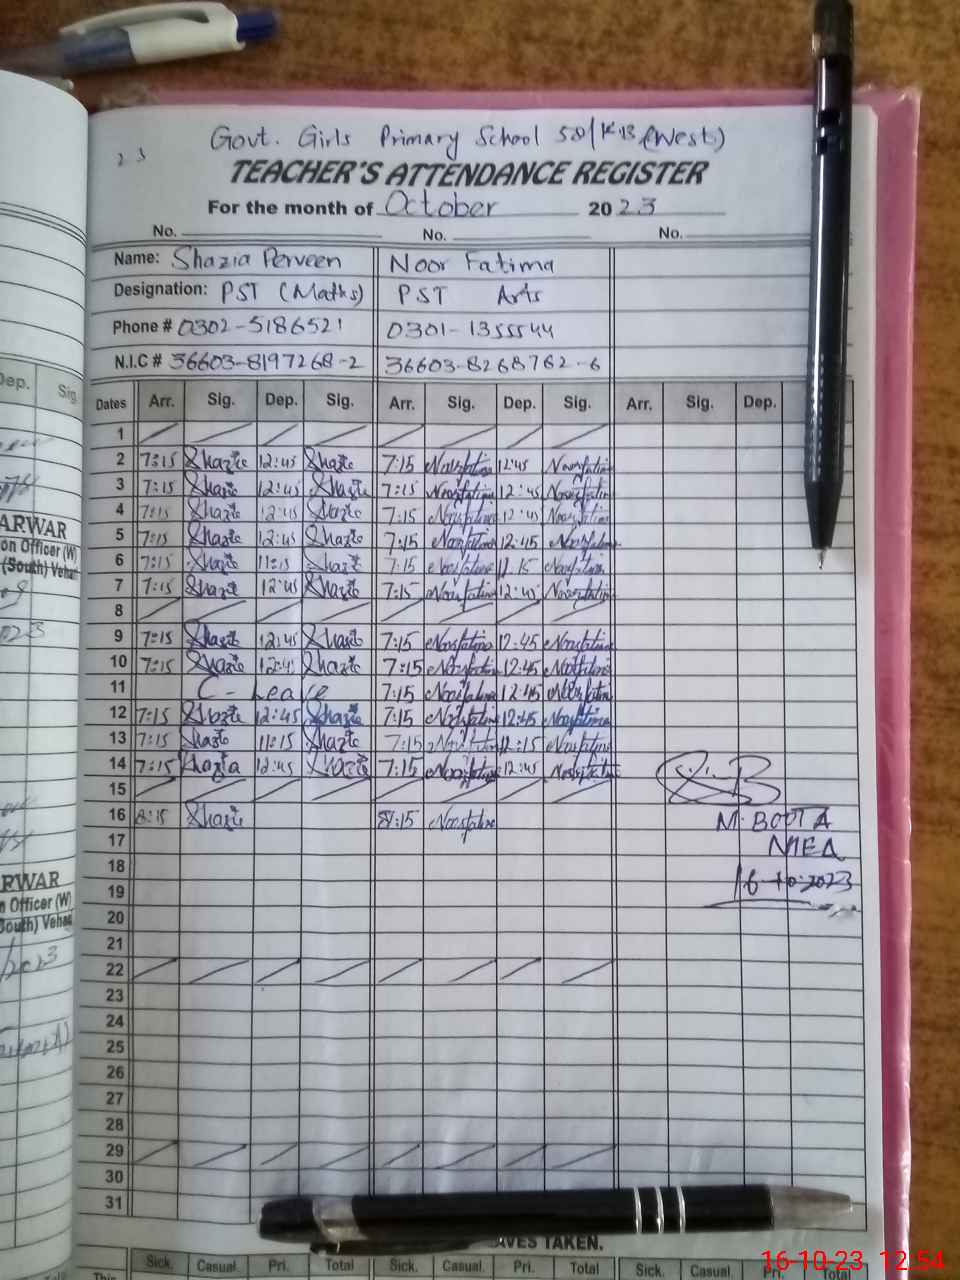 Govt. Girls Primary School 50/KB (West)
23
TEACHER'S ATTENDANCE REGISTER
For the month of October 2023
No. No. No.
Name: Shazia Perveen Noor Fatima
Designation: PST (Maths) PST Arts
Phone # 0302-5186521 0301-1355544
N.I.C # 36603-8197268-2 36603-8268762-6
Dates Arr. Sig. Dep. Sig. Arr. Sig. Dep. Sig. Arr. Sig. Dep.
1
2 7:15 Shazia 12:45 Shazia 7:15 Noorfatima 12:45 Noorfatima
3 7:15 Shazia 12:45 Shazia 7:15 Noorfatima 12:45 Noorfatima
4 7:15 Shazia 12:45 Shazia 7:15 Noorfatima 12:45 Noorfatima
5 7:15 Shazia 12:45 Shazia 7:15 Noorfatima 12:45 Noorfatima
6 7:15 Shazia 11:15 Shazia 7:15 Noorfatima 11:15 Noorfatima
7 7:15 Shazia 12:45 Shazia 7:15 Noorfatima 12:45 Noorfatima
8
9 7:15 Shazia 12:45 Shazia 7:15 Noorfatima 12:45 Noorfatima
10 7:15 Shazia 12:45 Shazia 7:15 Noorfatima 12:45 Noorfatima
11 C-Leave 7:15 Noorfatima 12:45 Noorfatima
12 7:15 Shazia 12:45 Shazia 7:15 Noorfatima 12:45 Noorfatima
13 7:15 Shazia 11:15 Shazia 7:15 Noorfatima 11:15 Noorfatima
14 7:15 Shazia 12:45 Shazia 7:15 Noorfatima 12:45 Noorfatima
15
16 8:15 Shazia 8:15 Noorfatima
M. BOOTA
17
MEA
18
16-10-2023
19
20
21
22
23
24
25
26
27
28
29
30
31
AVES TAKEN.
Sick. Casual. Pri. Total Sick. Casual. Pri. Total Sick. Casual. Pri. Total
This
Dep. Sig.
ARWAR
on Officer (W)
(South) Vehari
RWAR
n Officer (W)
South) Vehari
16-10-23 12:54